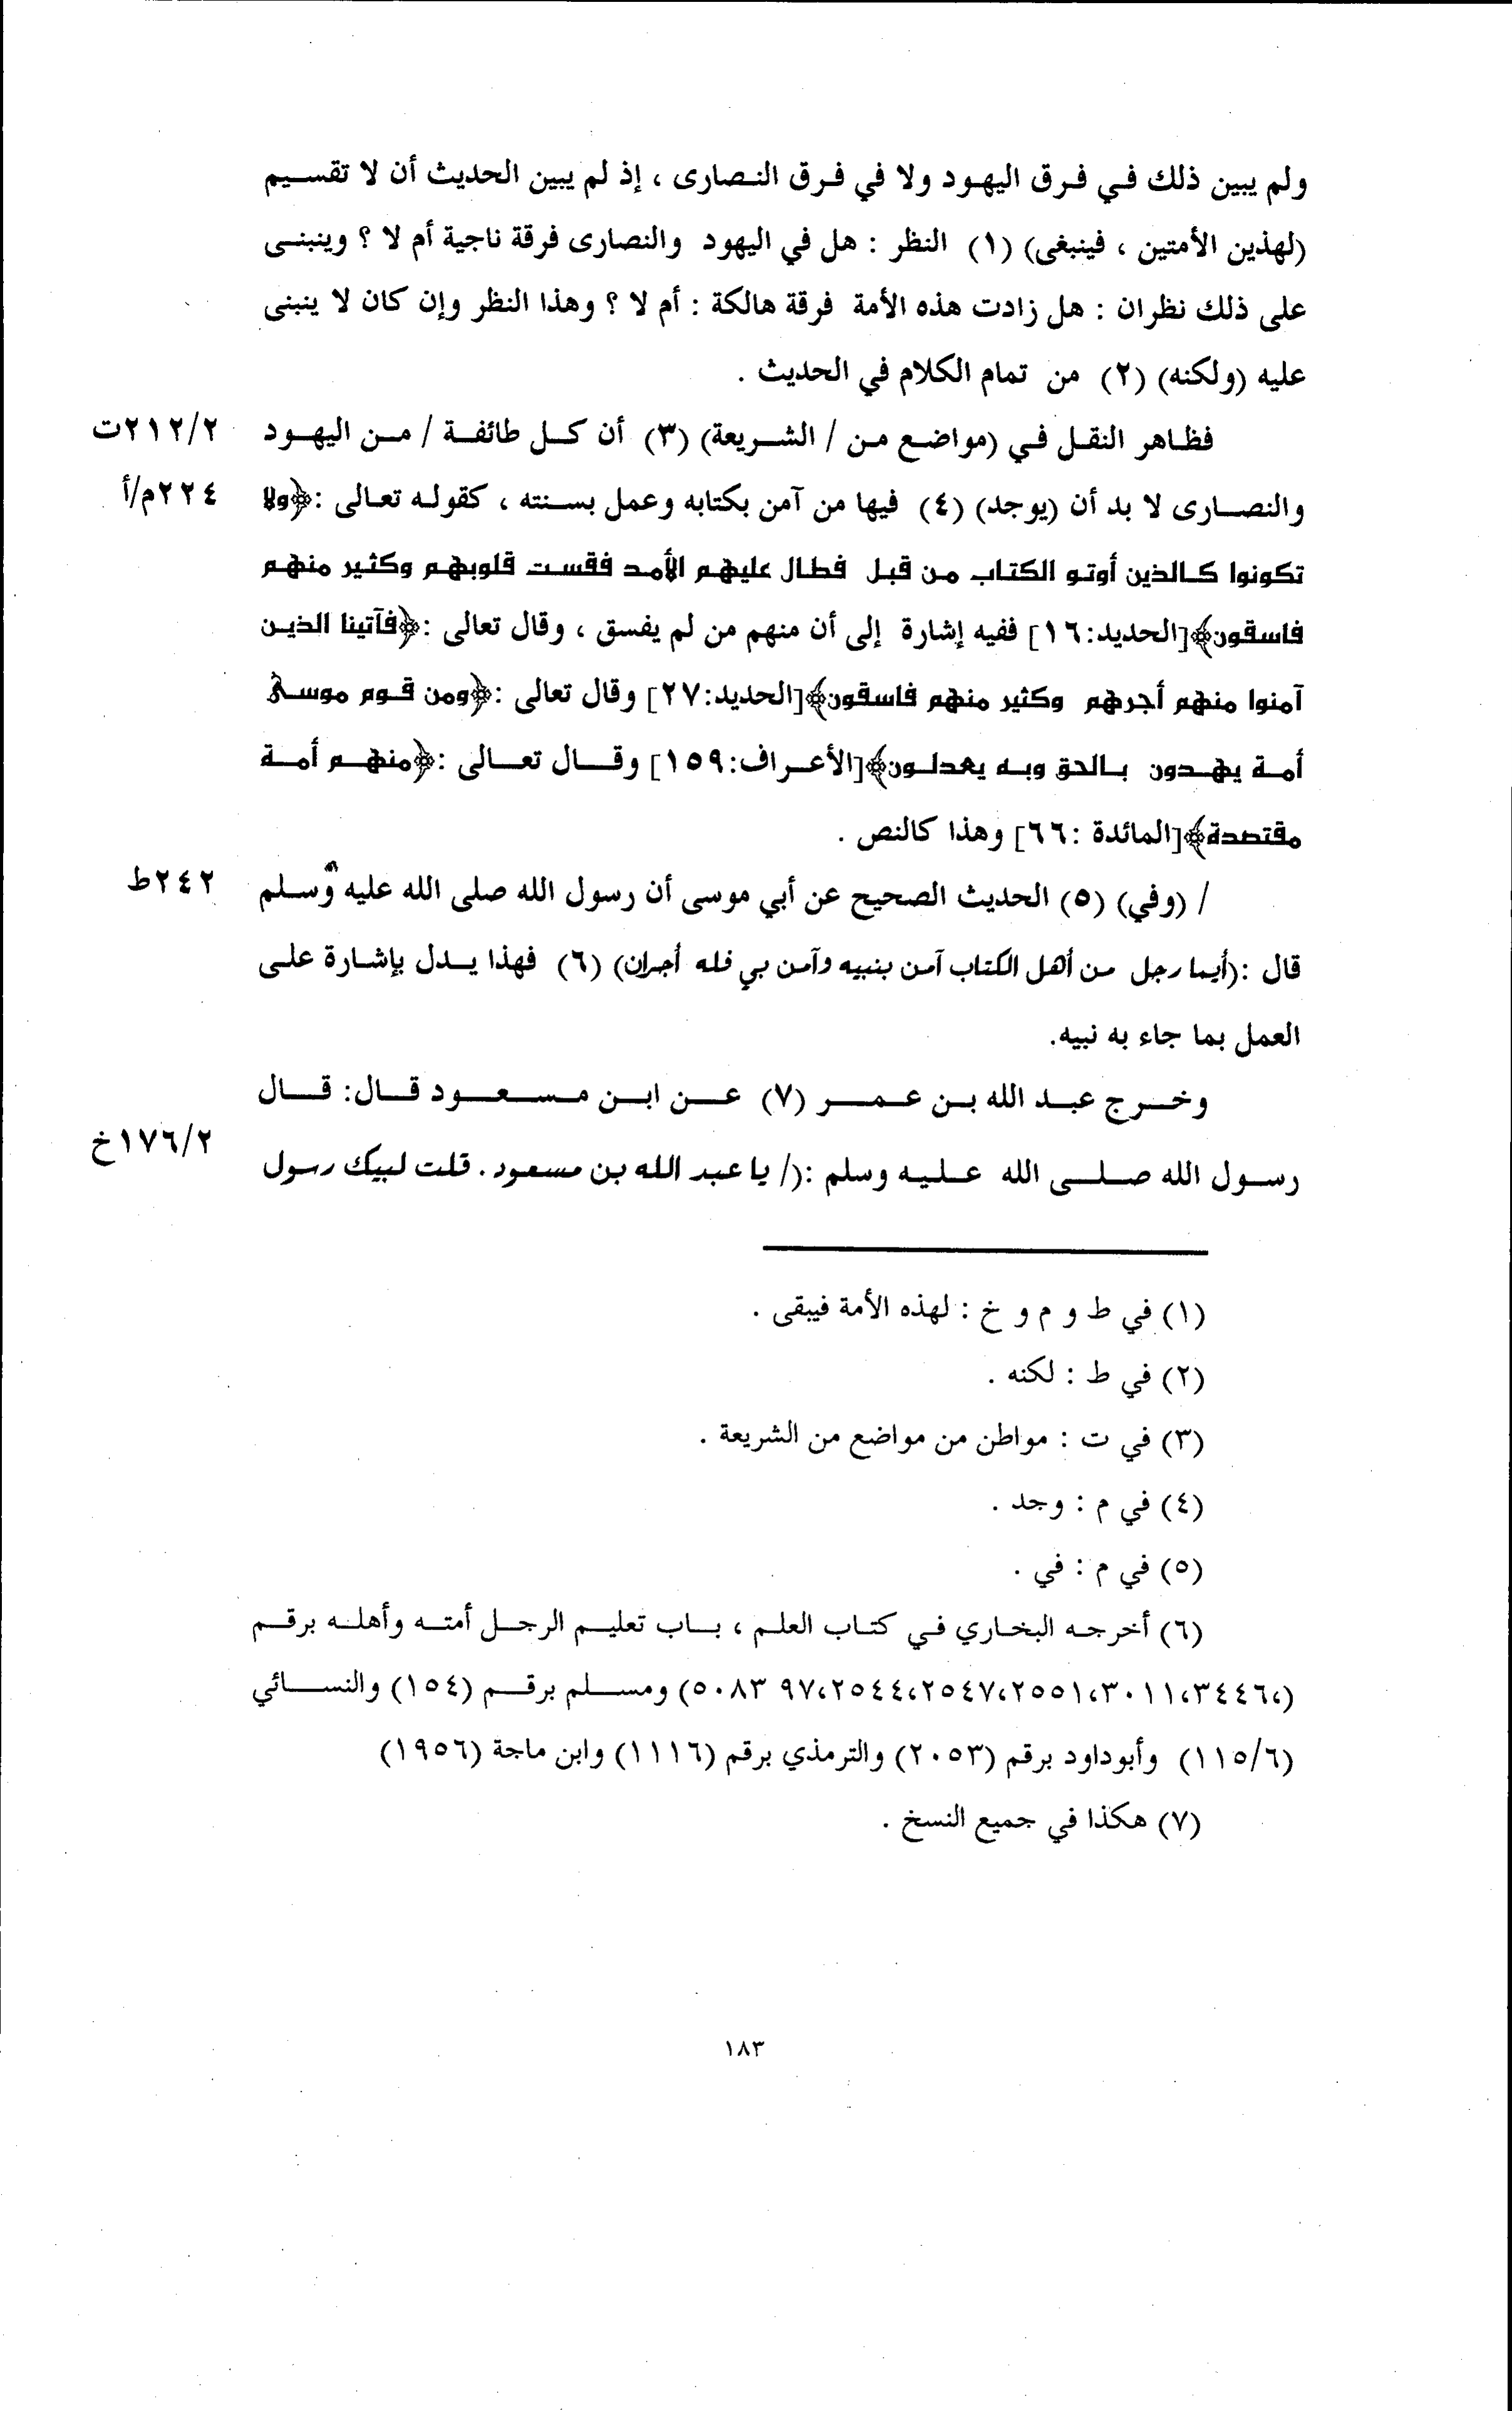 ولم يبين ذلك في فرق اليهود ولا في فرق النصارى ، إذ لم يبين الحديث أن لا تقسيم
(لهذين الأمتين ، فينبغى) (١) النظر : هل في اليهود والنصارى فرقة ناجية أم لا ؟ وينبنى
على ذلك نظران : هل زادت هذه الأمة فرقة هالكة : أم لا ؟ وهذا النظر وإن كان لا ينبنى
عليه (ولكنه) (٢) من تمام الكلام في الحديث .
فظاهر النقل في (مواضع من / الشريعة) (٣) أن كل طائفة / من اليهود ٢١٢/٢ت
والنصارى لا بد أن (يوجد) (٤) فيها من آمن بكتابه وعمل بسنته ، كقوله تعالى :﴿ولا ٢٢٤م/أ
تكونوا كالذين أوتو الكتاب من قبل فطال عليهم الأمد فقست قلوبهم وكثير منهم
فاسقون﴾[الحديد:١٦] ففيه إشارة إلى أن منهم من لم يفسق ، وقال تعالى :﴿فآتينا الذين
آمنوا منهم أجرهم وكثير منهم فاسقون﴾[الحديد:٢٧] وقال تعالى :﴿ومن قوم موسى
أمة يهدون بالحق وبه يعدلون﴾[الأعراف:١٥٩] وقال تعالى :﴿منهم أمة
مقتصدة﴾[المائدة :٦٦] وهذا كالنص .
/ (وفي) (٥) الحديث الصحيح عن أبي موسى أن رسول الله صلى الله عليه وسلم ٢٤٢ط
قال :(أيما رجل من أهل الكتاب آمن بنبيه وآمن بي فله أجران) (٦) فهذا يدل بإشارة على
العمل بما جاء به نبيه.
وخرج عبد الله بن عمر (٧) عن ابن مسعود قال: قال
رسول الله صلى الله عليه وسلم :(/ يا عبد الله بن مسعود. قلت لبيك رسول ١٧٦/٢خ
(١) في ط و م و خ : لهذه الأمة فيبقى .
(٢) في ط : لكنه .
(٣) في ت : مواطن من مواضع من الشريعة .
(٤) في م : وجد .
(٥) في م : في .
(٦) أخرجه البخاري في كتاب العلم ، باب تعليم الرجل أمته وأهله برقم
(،٩٧،٢٥٤٤،٢٥٤٧،٢٥٥١،٣٠١١،٣٤٤٦ ٥٠٨٣) ومسلم برقم (١٥٤) والنسائي
(١١٥/٦) وأبوداود برقم (٢٠٥٣) والترمذي برقم (١١١٦) وابن ماجة (١٩٥٦)
(٧) هكذا في جميع النسخ .
١٨٣